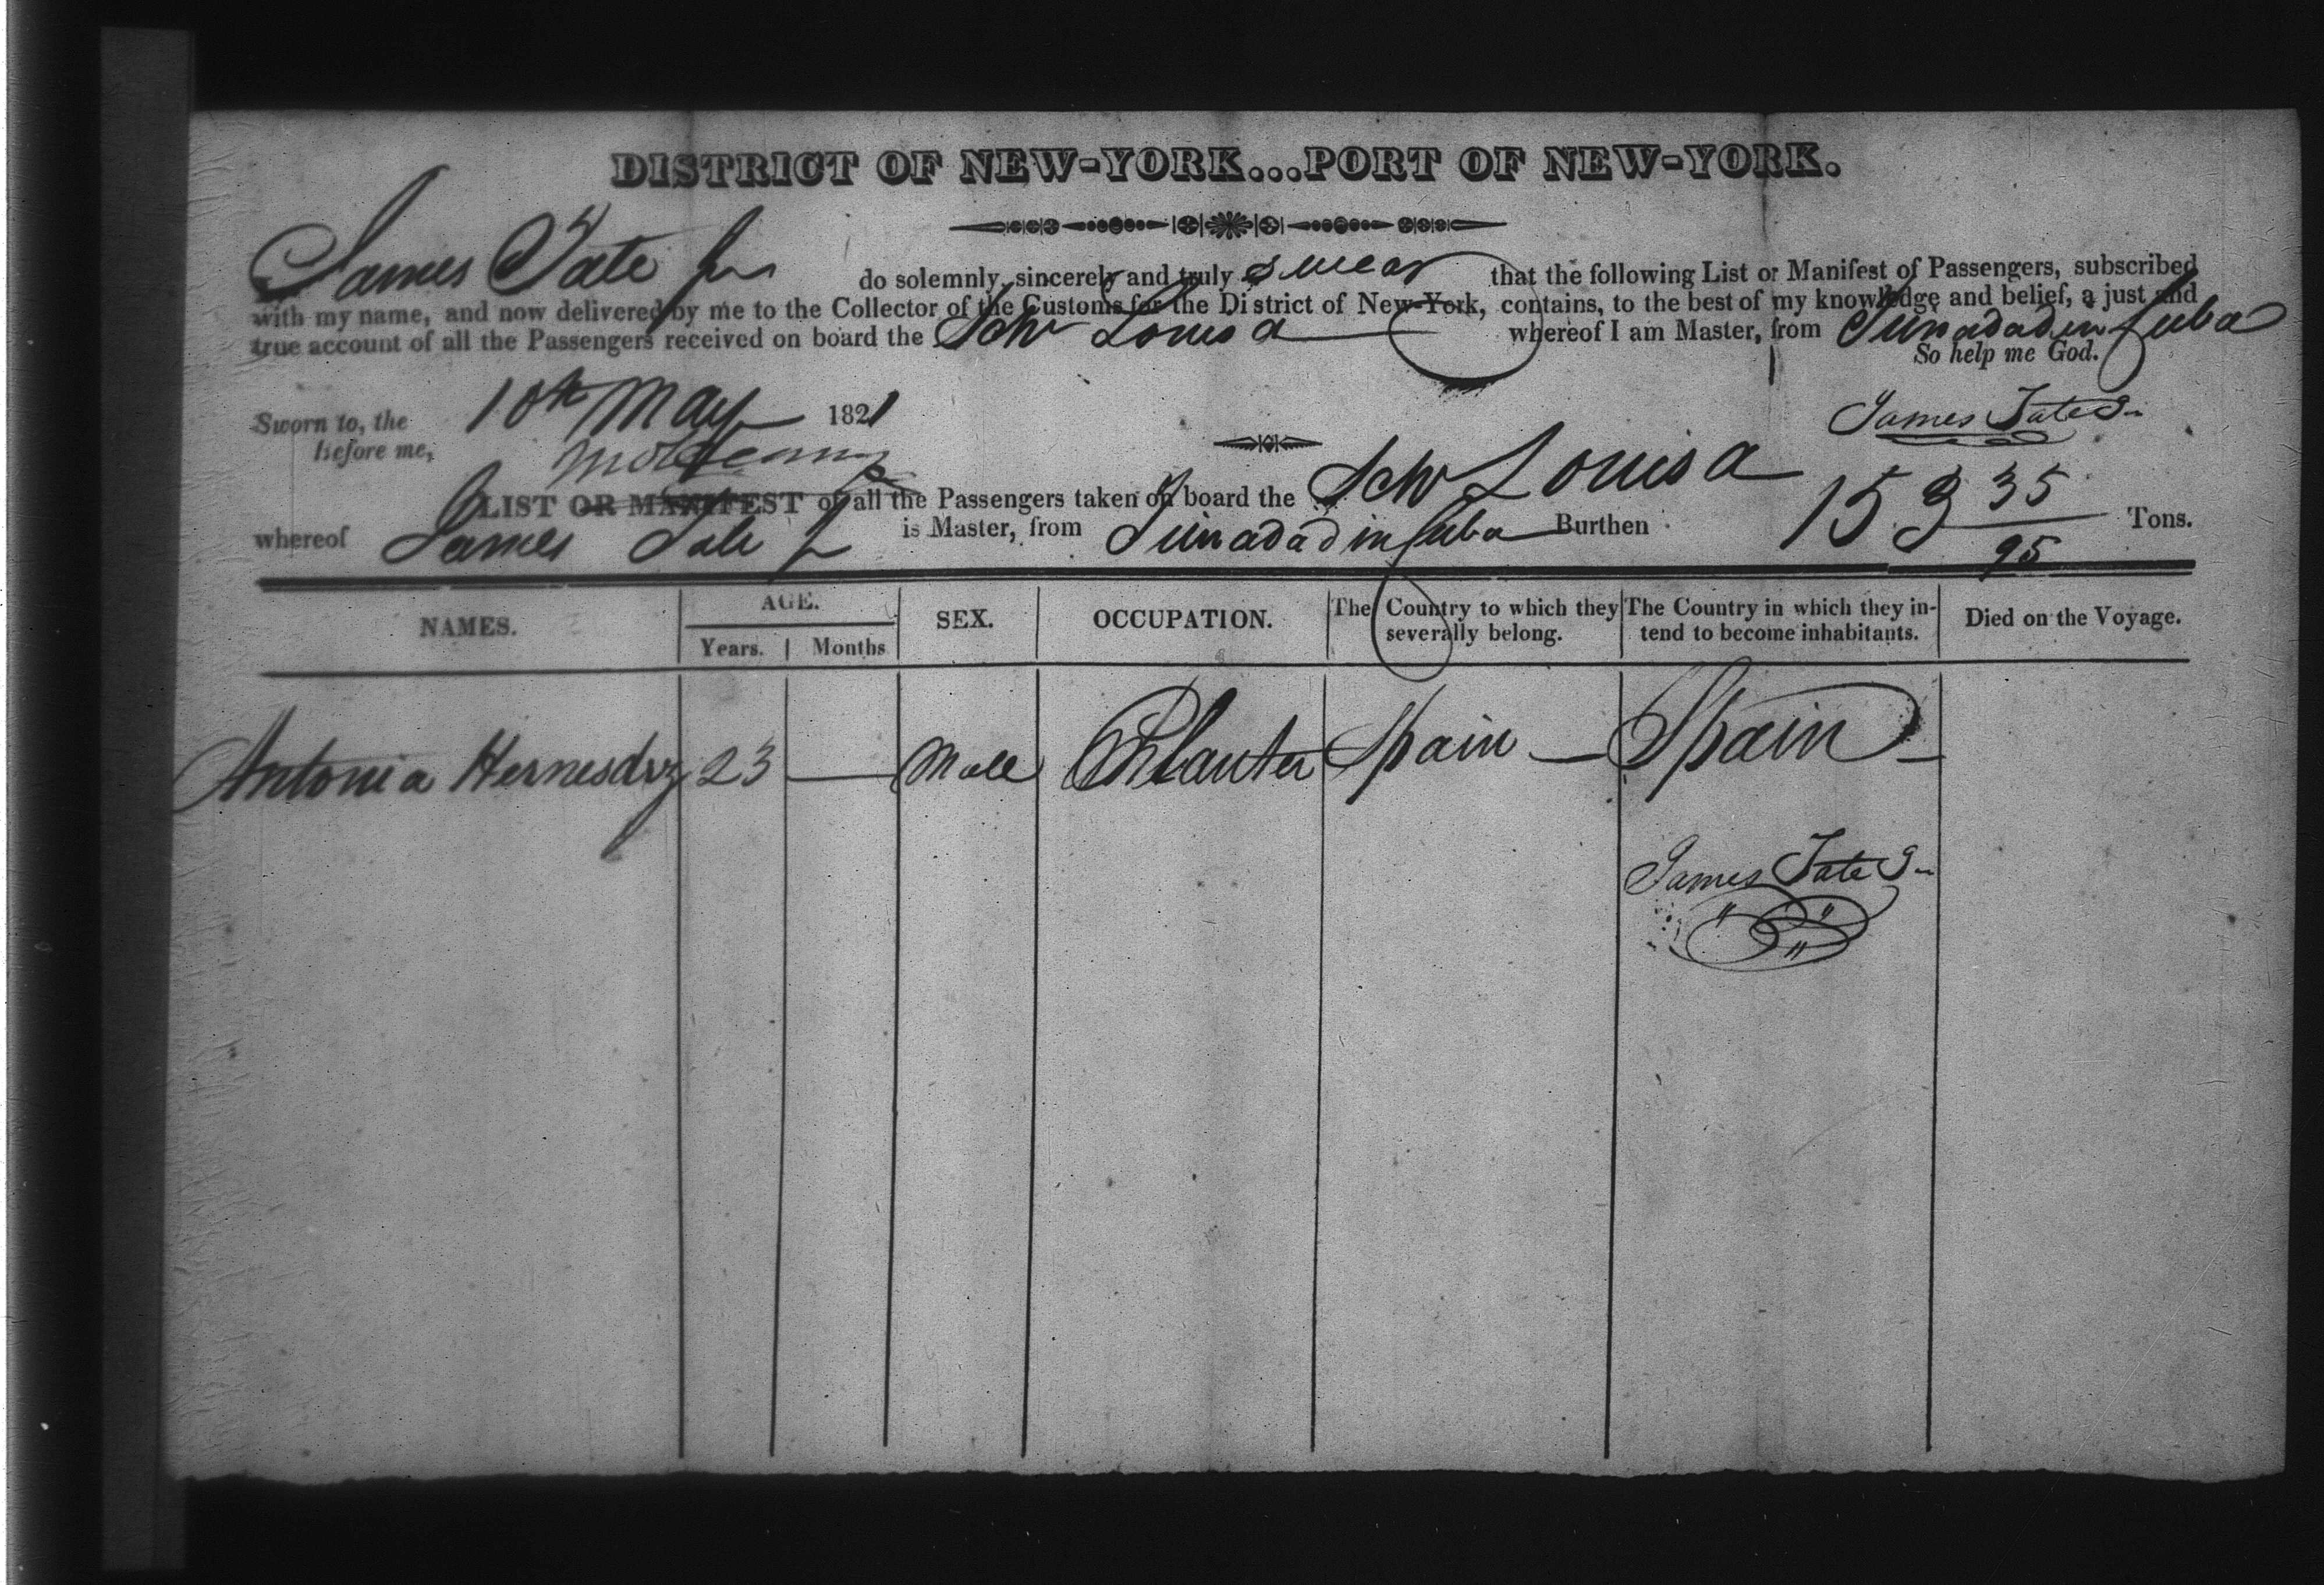 DISTRICT OF NEW-YORK...PORT OF NEW-YORK.
James Tate Jun do solemnly, sincerely and truly swear that the following List or Manifest of Passengers, subscribed
with my name, and now delivered by me to the Collector of the Customs for the District of New-York, contains, to the best of my knowledge and belief, a just and
true account of all the Passengers received on board the Schr Louisa whereof I am Master, from Trinadad in Cuba
So help me God.
Sworn to, the 10th May 1821
before me,
James Tate Jr
LIST OR MANIFEST of all the Passengers taken on board the Schr Louisa
whereof James Tate Jr is Master, from Trinadad in Cuba Burthen 153 35/95 Tons.
NAMES. AGE. SEX. OCCUPATION. The Country to which they severally belong. The Country in which they intend to become inhabitants. Died on the Voyage.
Years. Months
Antonia Hernesdez 23 — Male Planter Spain — Spain —
James Tate Jr